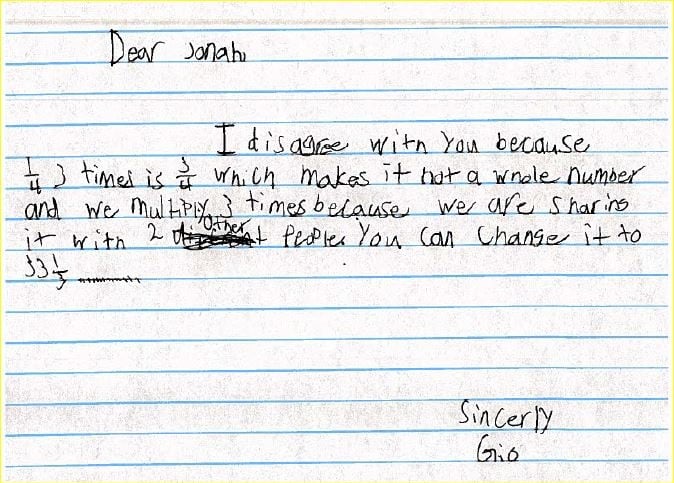 Dear Jonah,
I disagree with you because
1/4 3 times is 3/4 which makes it not a whole number
and we multiply 3 times because we are sharing
it with 2 other people. You can change it to
33 1/3
Sincerly
Gio